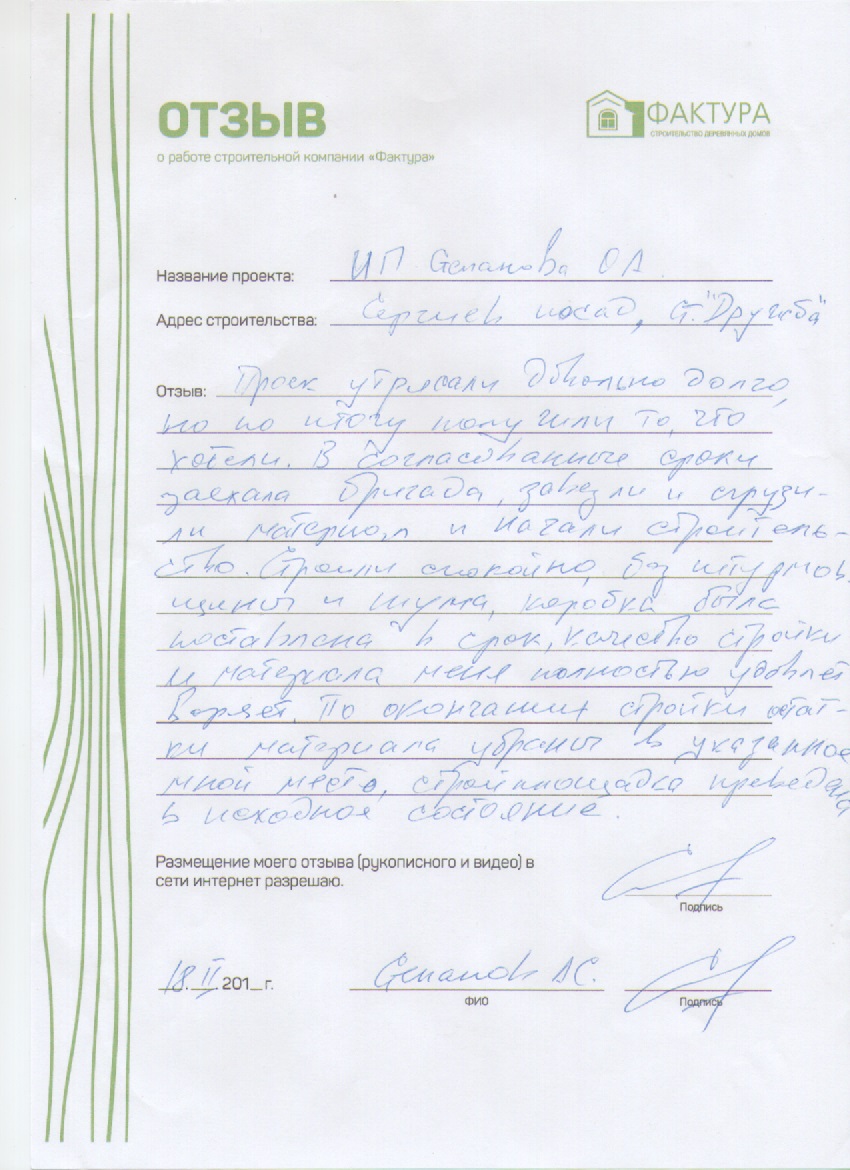 ОТЗЫВ
ФАКТУРА
СТРОИТЕЛЬСТВО ДЕРЕВЯННЫХ ДОМОВ
о работе строительной компании «Фактура»
Название проекта: ИП Степанова О А
Адрес строительства: Сергиев посад, ст. "Дружба"
Отзыв: Проек утрясали довольно долго,
но по итогу получили то, что
хотели. В согласованные сроки
заехала бригада, завезли и сгрузи-
ли материал и начали строитель-
ство. Строили спокойно, без штурмов
щины и шума, коробка была
поставлена в срок, качество стройки
и материала меня полностью удовлет
воряет. По окончании стройки остат-
ки материала убраны в указанное
мной место, стройплощадка приведена
в исходное состояние.
Размещение моего отзыва (рукописного и видео) в
сети интернет разрешаю.
Подпись
18. II. 201_ г. Степанов АС.
ФИО Подпись